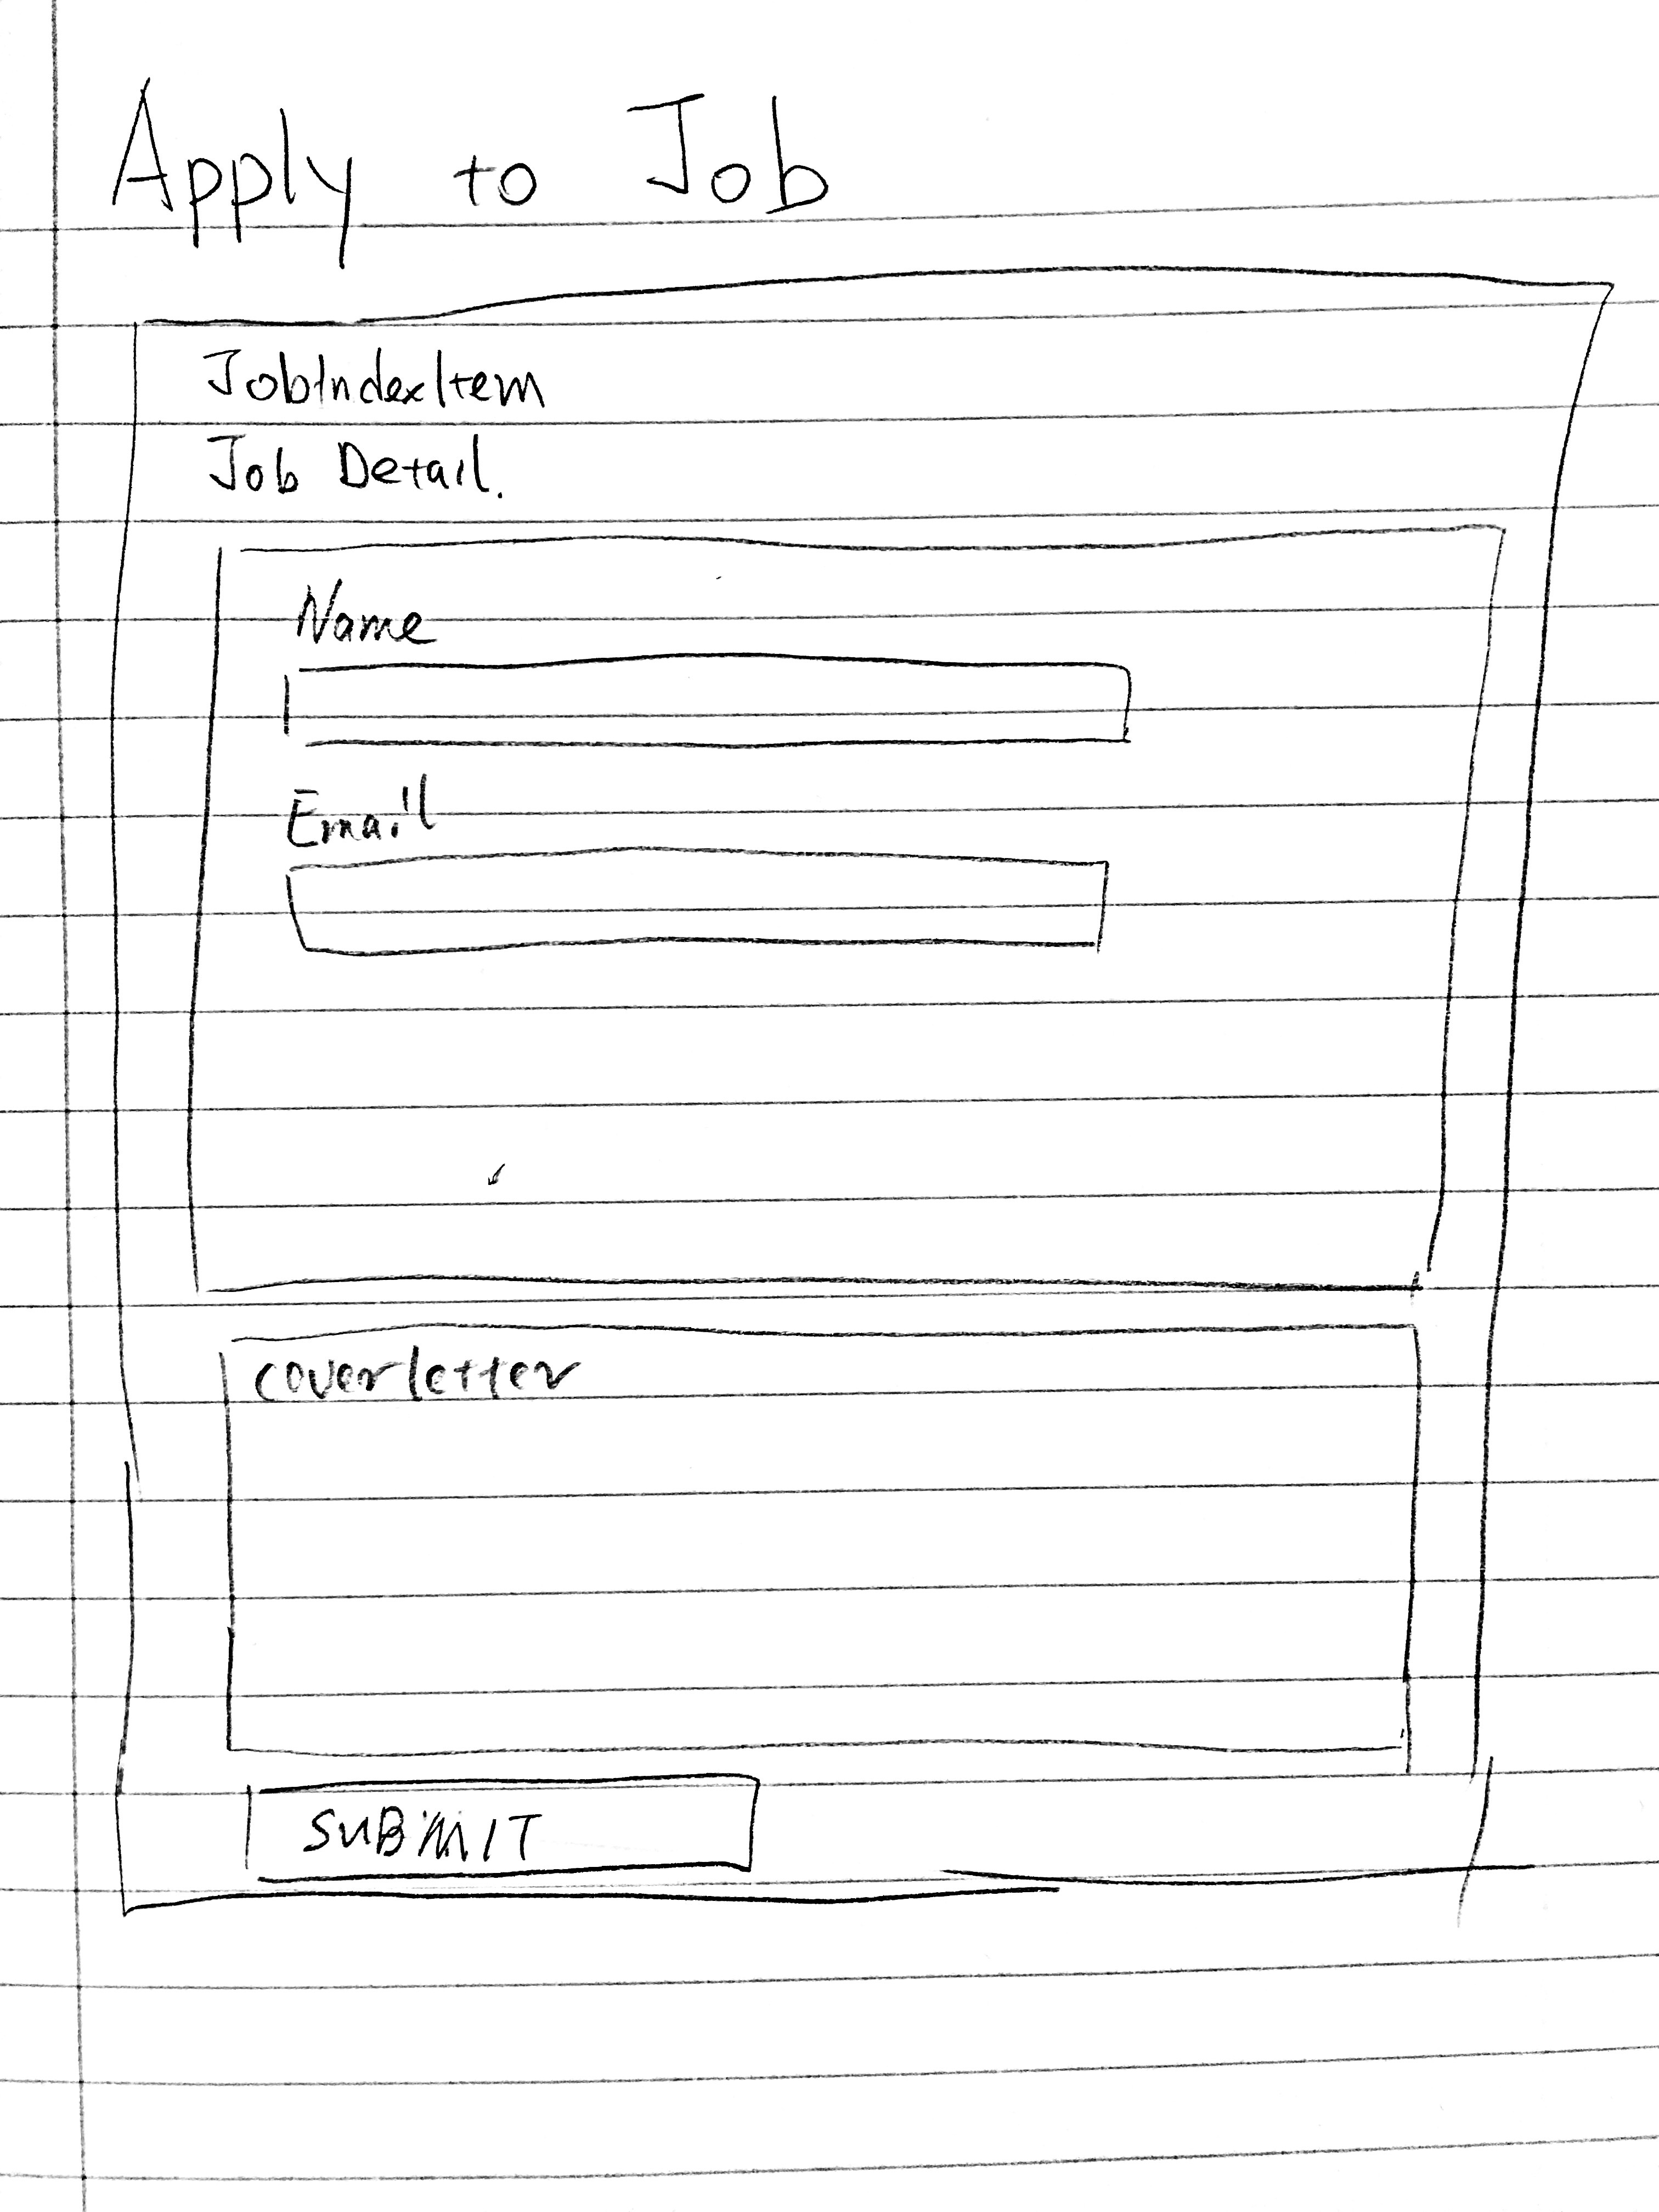 Apply to Job
JobIndexItem
Job Detail.
Name
Email
coverletter
SUBMIT